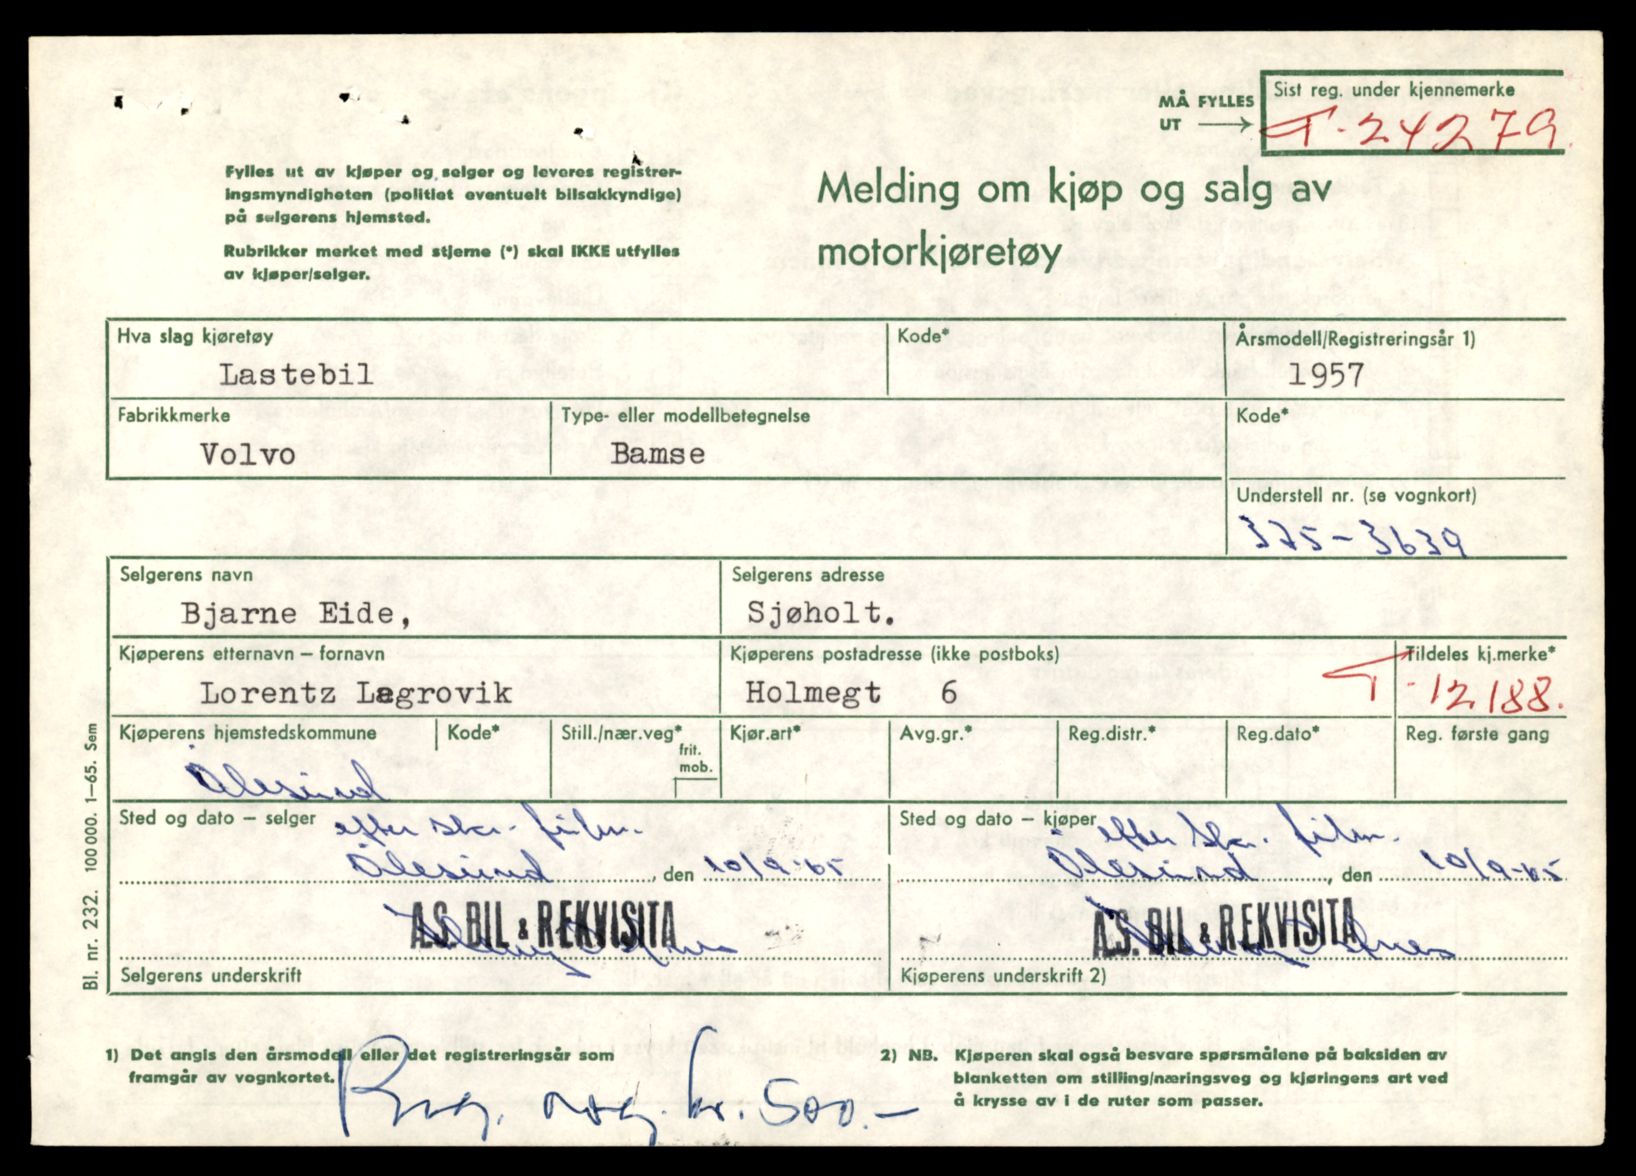 MÅ FYLLES
UT
Sist reg. under kjennemerke
T-24279.
Fylles ut av kjøper og selger og leveres registrer-
ingsmyndigheten (politiet eventuelt bilsakkyndige)
på selgerens hjemsted.
Rubrikker merket med stjerne (*) skal IKKE utfylles
av kjøper/selger.
Melding om kjøp og salg av
motorkjøretøy
Hva slag kjøretøy
Lastebil
Kode*
Årsmodell/Registreringsår 1)
1957
Fabrikkmerke
Volvo
Type- eller modellbetegnelse
Bamse
Kode*
Understell nr. (se vognkort)
375-3639
Selgerens navn
Bjarne Eide,
Selgerens adresse
Sjøholt.
Kjøperens etternavn – fornavn
Lorentz Lægrovik
Kjøperens postadresse (ikke postboks)
Holmegt 6
Tildeles kj.merke*
T-12188.
Kjøperens hjemstedskommune
Ålesund
Kode*
Still./nær.veg*
frit.
mob.
Kjør.art*
Avg.gr.*
Reg.distr.*
Reg.dato*
Reg. første gang
Sted og dato – selger
efter skr.
Ålesund, den 10/9-65
A.S. BIL & REKVISITA
Selgerens underskrift
Sted og dato – kjøper
efter skr.
Ålesund, den 10/9-65
A.S. BIL & REKVISITA
Kjøperens underskrift 2)
Bl. nr. 232. 100 000. 1–65. Sem
1) Det angis den årsmodell eller det registreringsår som
framgår av vognkortet.
2) NB. Kjøperen skal også besvare spørsmålene på baksiden av
blanketten om stilling/næringsveg og kjøringens art ved
å krysse av i de ruter som passer.
kr. 500.-